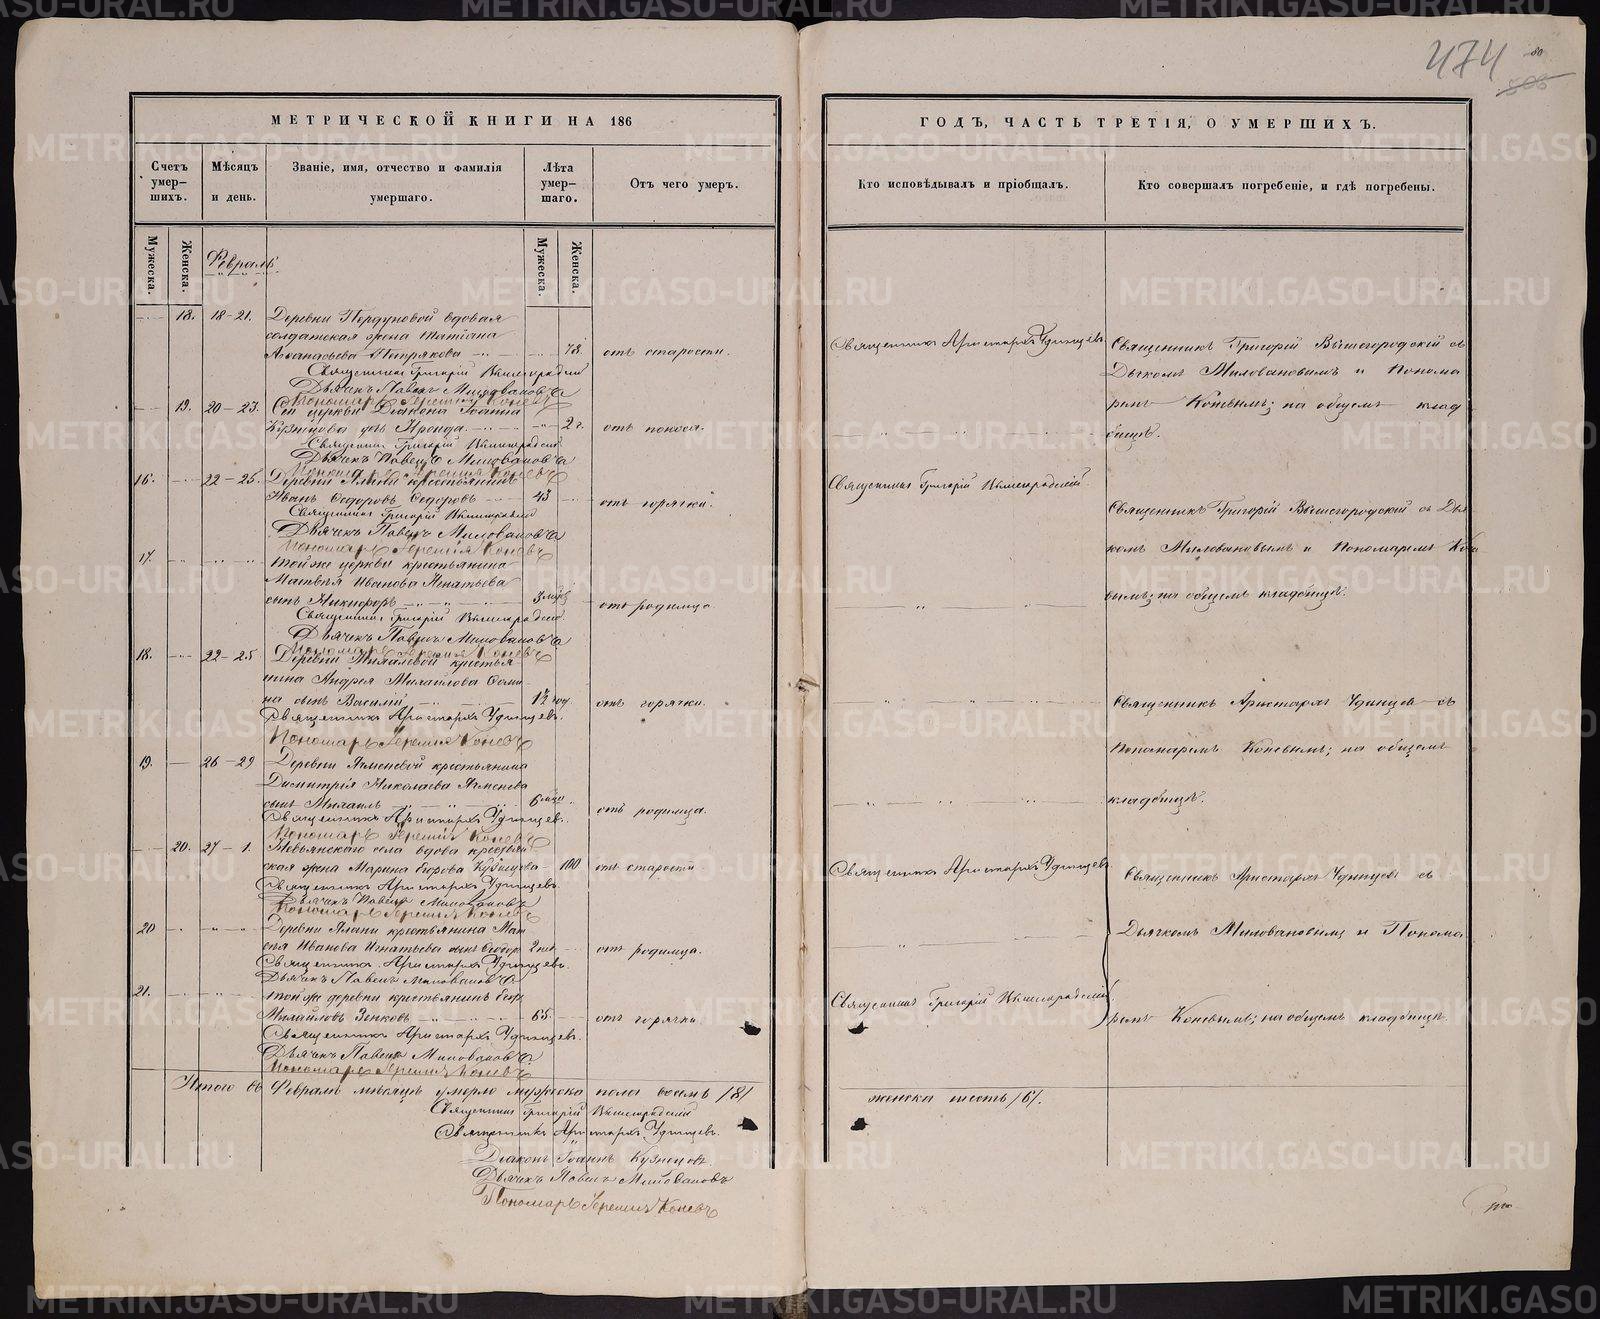 474
80
506
МЕТРИЧЕСКОЙ КНИГИ НА 186
Счетъ умер-шихъ.
Мѣсяцъ и день.
Званіе, имя, отчество и фамилія умершаго.
Лѣта умер-шаго.
Отъ чего умеръ.
Мужеска.
Женска.
Мужеска.
Женска.
Февраль
18. 18-21. Деревни вдовая
солдатская жена Татіана
78. отъ старости.
Священникъ Григорій Вышегородскій
Дьячекъ Павелъ Миловановъ
Пономарь Іеремія Коневъ
19. 20-23. Сей церкви Діакона Іоанна
Кузнецова дочь 2 г.
Священникъ Григорій Вышегородскій
Дьячекъ Павелъ Миловановъ
Пономарь Іеремія Коневъ
16. 22-25. Деревни крестьянинъ
Иванъ Ѳедоровъ Ѳедоровъ 43 отъ горячки.
Священникъ Григорій Вышегородскій
Дьячекъ Павелъ Миловановъ
Пономарь Іеремія Коневъ
17. крестьянина
Матвѣя Иванова Игнатьева
сынъ Никифоръ 3 отъ родимца
Священникъ Григорій Вышегородскій
Дьячекъ Павелъ Миловановъ
Пономарь Іеремія Коневъ
18. 22-25 Деревни крестья
нина Андрея Михайлова
на сынъ Василій отъ горячки.
Священникъ Аристархъ Удинцевъ.
Пономарь Іеремія Коневъ
19. 26-29 Деревни Ячменевой крестьянина
Димитрія Николаева Ячменева
сынъ Михаилъ 6 отъ родимца.
Священникъ Аристархъ Удинцевъ.
Пономарь Іеремія Коневъ
20. 27-1. Невьянскаго села вдова крестьян
ская жена Марина Кузнецова 100 отъ старости
Священникъ Аристархъ Удинцевъ.
Дьячекъ Павелъ Миловановъ
Пономарь Іеремія Коневъ
20 Деревни крестьянина Мат
вѣя Иванова Игнатьева сынъ 2 отъ родимца.
Священникъ Аристархъ Удинцевъ.
Дьячекъ Павелъ Миловановъ
21. той же деревни крестьянинъ
Михайловъ Зенковъ 65 отъ горячки.
Священникъ Аристархъ Удинцевъ.
Дьячекъ Павелъ Миловановъ
Пономарь Іеремія Коневъ
Итого въ Февралѣ мѣсяцѣ умерло мужеска пола восемь /8/
Священникъ Григорій Вышегородскій
Священникъ Аристархъ Удинцевъ.
Діаконъ Іоаннъ Кузнецовъ.
Дьячекъ Павелъ Миловановъ
Пономарь Іеремія Коневъ
ГОДЪ, ЧАСТЬ ТРЕТІЯ, О УМЕРШИХЪ.
Кто исповѣдывалъ и пріобщалъ.
Кто совершалъ погребеніе, и гдѣ погребены.
Священникъ Аристархъ Удинцевъ
Священникъ Григорій Вышегородскій съ
Дьячкомъ Миловановымъ и Понома
ремъ Коневымъ; на общемъ клад
бищѣ.
Священникъ Григорій Вышегородскій
Священникъ Григорій Вышегородскій съ Дья
комъ Миловановымъ и Пономаремъ Коне
вымъ; на общемъ кладбищѣ.
Священникъ Аристархъ Удинцевъ съ
Пономаремъ Коневымъ; на общемъ
кладбищѣ.
Священникъ Аристархъ Удинцевъ
Священникъ Аристархъ Удинцевъ съ
Дьячкомъ Миловановымъ и Понома
Священникъ Григорій Вышегородскій
ремъ Коневымъ; на общемъ кладбищѣ.
женска шесть /6/.
METRIKI.GASO-URAL.RU